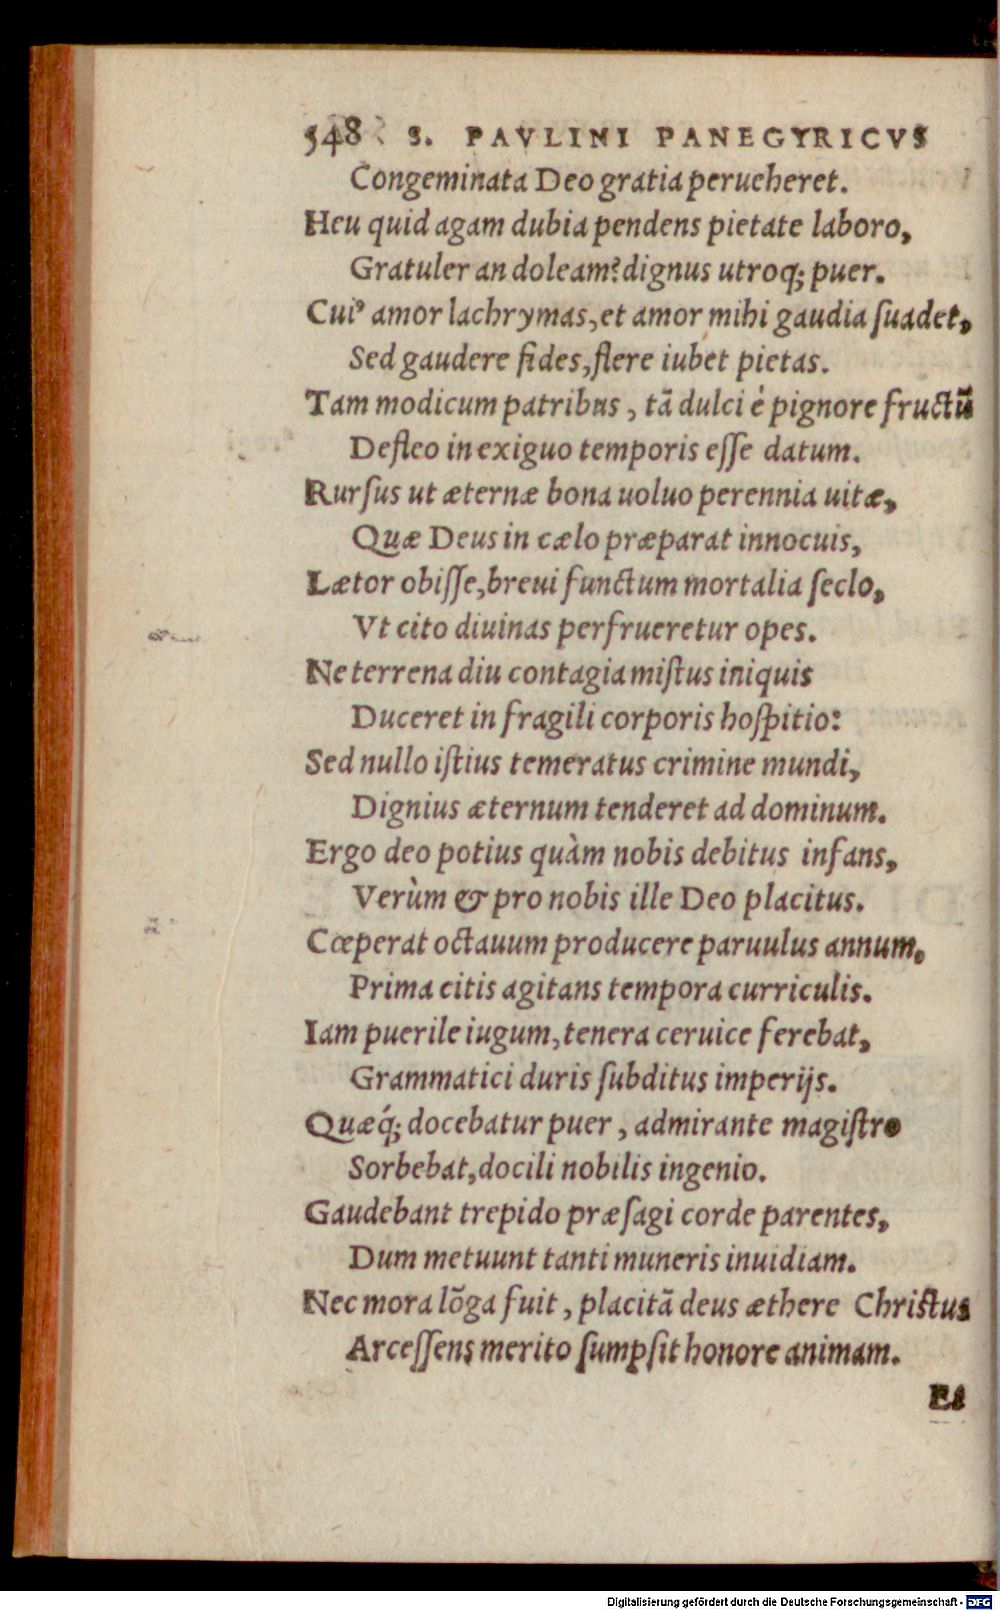 548 S. PAVLINI PANEGYRICVS
Congeminata Deo gratia perueheret.
Heu quid agam dubia pendens pietate laboro,
Gratuler an doleam? dignus utroq; puer.
Cuiꝰ amor lachrymas, et amor mihi gaudia ſuadet,
Sed gaudere fides, flere iubet pietas.
Tam modicum patribus, tã dulci è pignore fructũ
Defleo in exiguo temporis eſſe datum.
Rurſus ut æternæ bona uoluo perennia uitæ,
Quæ Deus in cælo præparat innocuis,
Lætor obiſſe, breui functum mortalia ſeclo,
Vt cito diuinas perfrueretur opes.
Ne terrena diu contagia miſtus iniquis
Duceret in fragili corporis hoſpitio:
Sed nullo iſtius temeratus crimine mundi,
Dignius æternum tenderet ad dominum.
Ergo deo potius quàm nobis debitus infans,
Verùm & pro nobis ille Deo placitus.
Cœperat octauum producere paruulus annum,
Prima citis agitans tempora curriculis.
Iam puerile iugum, tenera ceruice ferebat,
Grammatici duris ſubditus imperijs.
Quæq́; docebatur puer, admirante magiſtro
Sorbebat, docili nobilis ingenio.
Gaudebant trepido præſagi corde parentes,
Dum metuunt tanti muneris inuidiam.
Nec mora lõga fuit, placitã deus æthere Chriſtus
Arceſſens merito ſumpſit honore animam.
Et
Digitalisierung gefördert durch die Deutsche Forschungsgemeinschaft - DFG